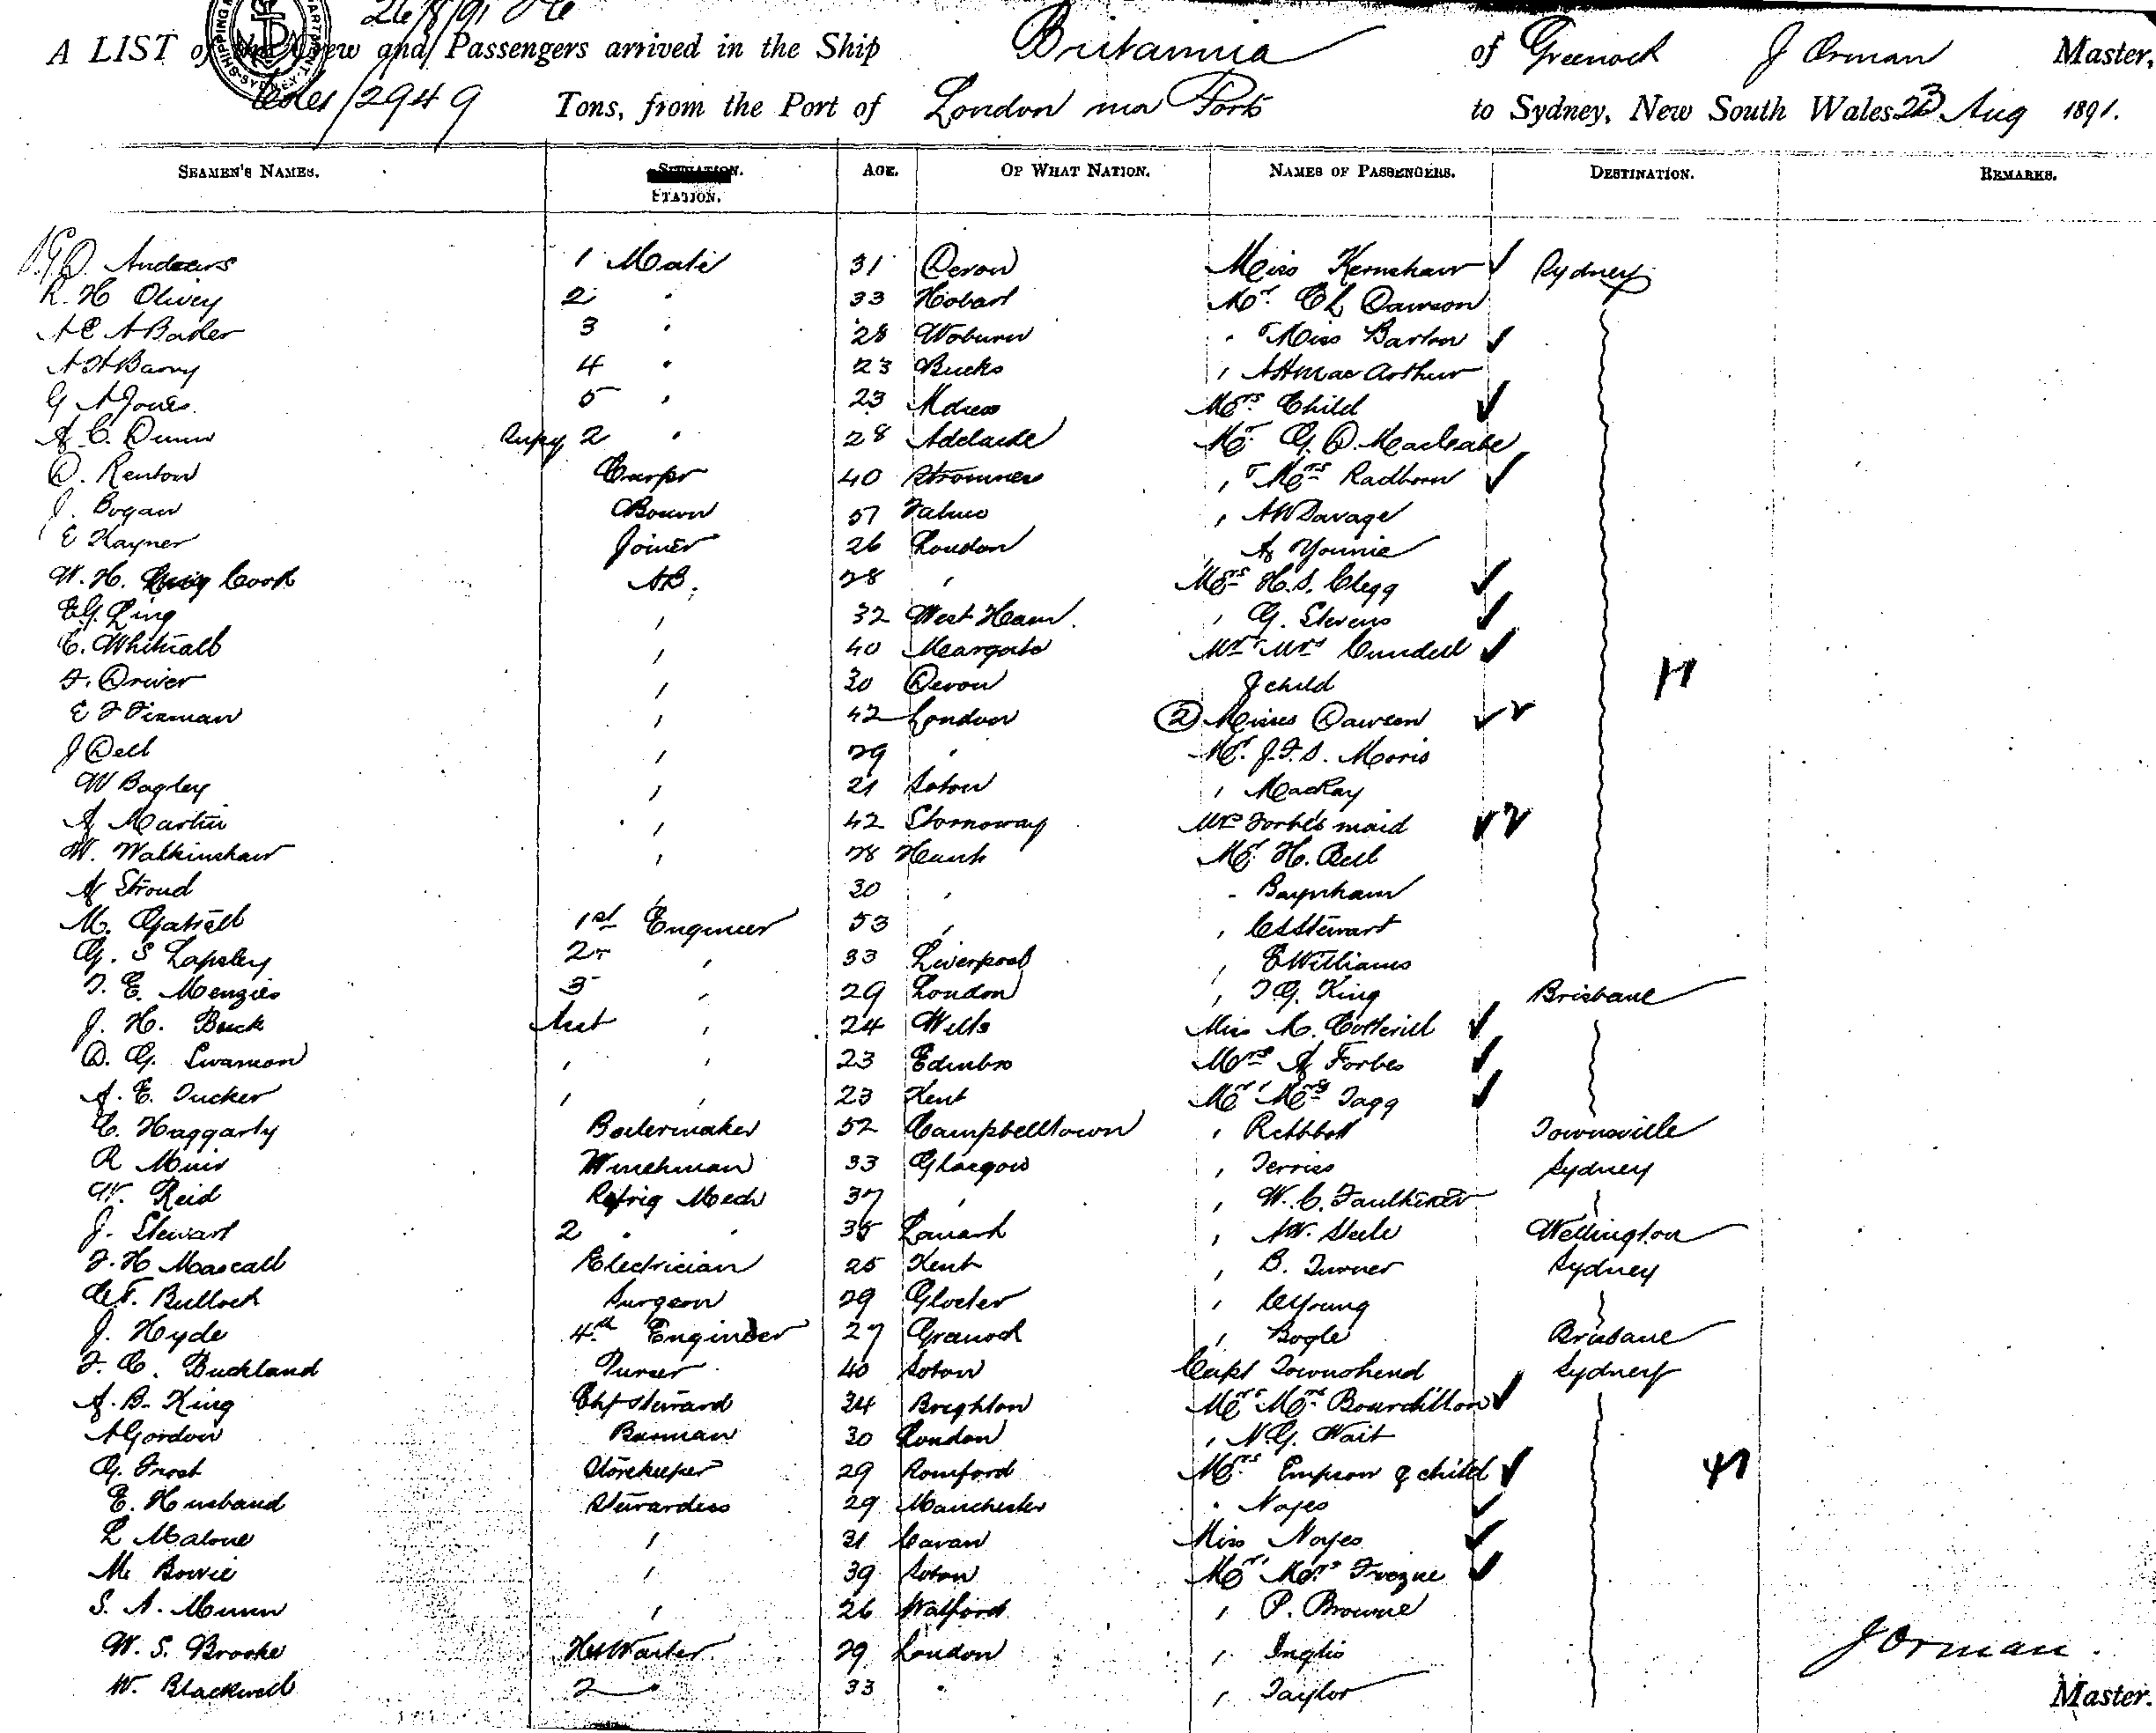 26/8/91
A LIST of the Crew and Passengers arrived in the Ship Britannia of Greenock J Orman Master,
2949 Tons, from the Port of London via Ports to Sydney, New South Wales 23 Aug 1891.
SEAMEN'S NAMES. STATION. AGE. OF WHAT NATION. NAMES OF PASSENGERS. DESTINATION. REMARKS.
Andrews 1 Mate 31 Devon Miss Kernshaw ✓ Sydney
R. H Olivey 2 " 33 Hobart Mr. E L Dawson
A E A Baker 3 " 28 Woburn " Miss Barton ✓
A H Barry 4 " 23 Bucks " A H MacArthur
G A Jones 5 " 23 Mdsex Mrs Child ✓
A C. Dunn Supy 2 " 28 Adelaide Mr G. D. MacCabe
D. Renton Carpr 40 Stromness " Mrs Radborn ✓
J. Bogan Boswn 57 Falmo " A W Savage
E Rayner Joiner 26 London " A Younie
W. H. Cook AB. 28 " Mrs H. S. Clegg ✓
E G Ling " 32 West Ham. " G. Stevens ✓
C. Whitnall " 40 Margate Mr Mrs Cundell ✓
F. Driver " 30 Devon & child 17
E F Fixman " 42 London (2) Misses Dawson ✓✓
J Dell " 29 " Mr. J. F. S. Moris
W Bagley " 21 Soton " MacKay
A Martin " 42 Stornoway Mrs Forbes maid ✓✓
W. Walkinshaw " 28 Hants Mr H. Bell
A Stroud " 30 " " Baynham
M. Gatrell 1st Engineer 53 " " C S Stewart
G. S Lapsley 2 " 33 Liverpool " E Williams
T. E. Menzies 3 " 29 London " T G. King Brisbane
J. H. Buck Asst " 24 Wilts Miss M. Cotterill ✓
D. G. Swanson " " 23 Edinbro Mrs A Forbes ✓
A. E. Tucker " " 23 Kent Mr Mrs Tagg ✓
C. Haggarty Boilermaker 52 Campbelltown " Townsville
R Muir Winchman 33 Glasgow " Terriss Sydney
W. Reid Refrig Mech 37 " " W. C. Faulkner
J. Stewart 2 " " 35 Lanark " A W. Steele Wellington
F. H Mascall Electrician 25 Kent " B. Turner Sydney
C. F. Bullock Surgeon 29 Gloster " C Young
J. Hyde 4th Engineer 27 Granock " Bogle Brisbane
F. C. Buckland Purser 40 Soton Capt Townshend Sydney
A. B. King Chf Steward 34 Brighton Mr Mrs Bourdillon ✓
A Gordon Barman 30 London " N. G. Wait
G. Frost Storekeeper 29 Romford Mrs Empson & child ✓ 47
E. Husband Stewardess 29 Manchester " Noyes ✓
L Malone " 31 Cavan Miss Noyes ✓
M. Bowie " 39 Soton Mr Mrs ✓
S. A. Munn " 26 Watford " P. Browne
W. S. Brooke Hd Waiter 29 London " Inglis J Orman.
W. Blackwell 2 " 33 " " Taylor Master.